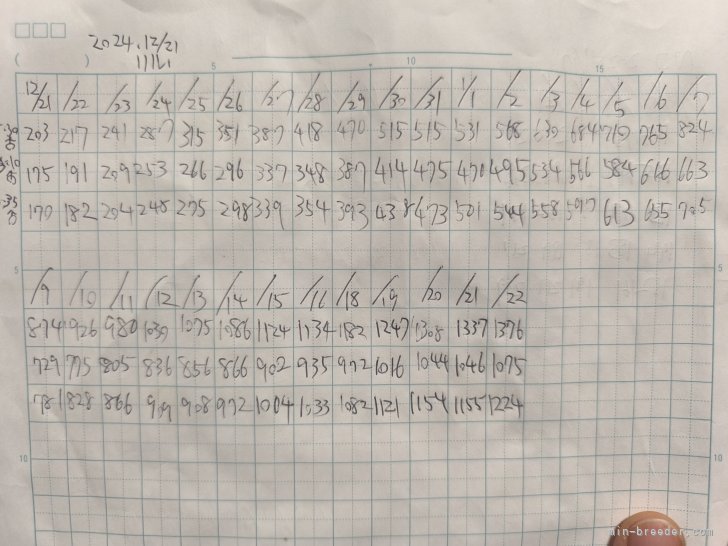 2024.12/21
( )
5 10 15
12/21 /22 /23 /24 /25 /26 /27 /28 /29 /30 /31 1/1 /2 /3 /4 /5 /6 /7
203 217 241 287 315 351 387 418 470 515 515 531 568 630 684 710 765 824
175 191 209 253 266 296 337 348 387 414 475 470 495 534 566 584 616 663
170 182 204 248 275 298 339 354 393 438 473 501 544 558 597 613 655 705
5 5
/9 /10 /11 /12 /13 /14 /15 /16 /18 /19 /20 /21 /22
874 926 980 1030 1075 1086 1124 1134 1182 1247 1308 1337 1376
729 775 805 836 856 866 902 935 972 1016 1044 1046 1075
781 828 866 909 908 972 1004 1033 1082 1121 1154 1155 1224
10 10
min-breeder.com